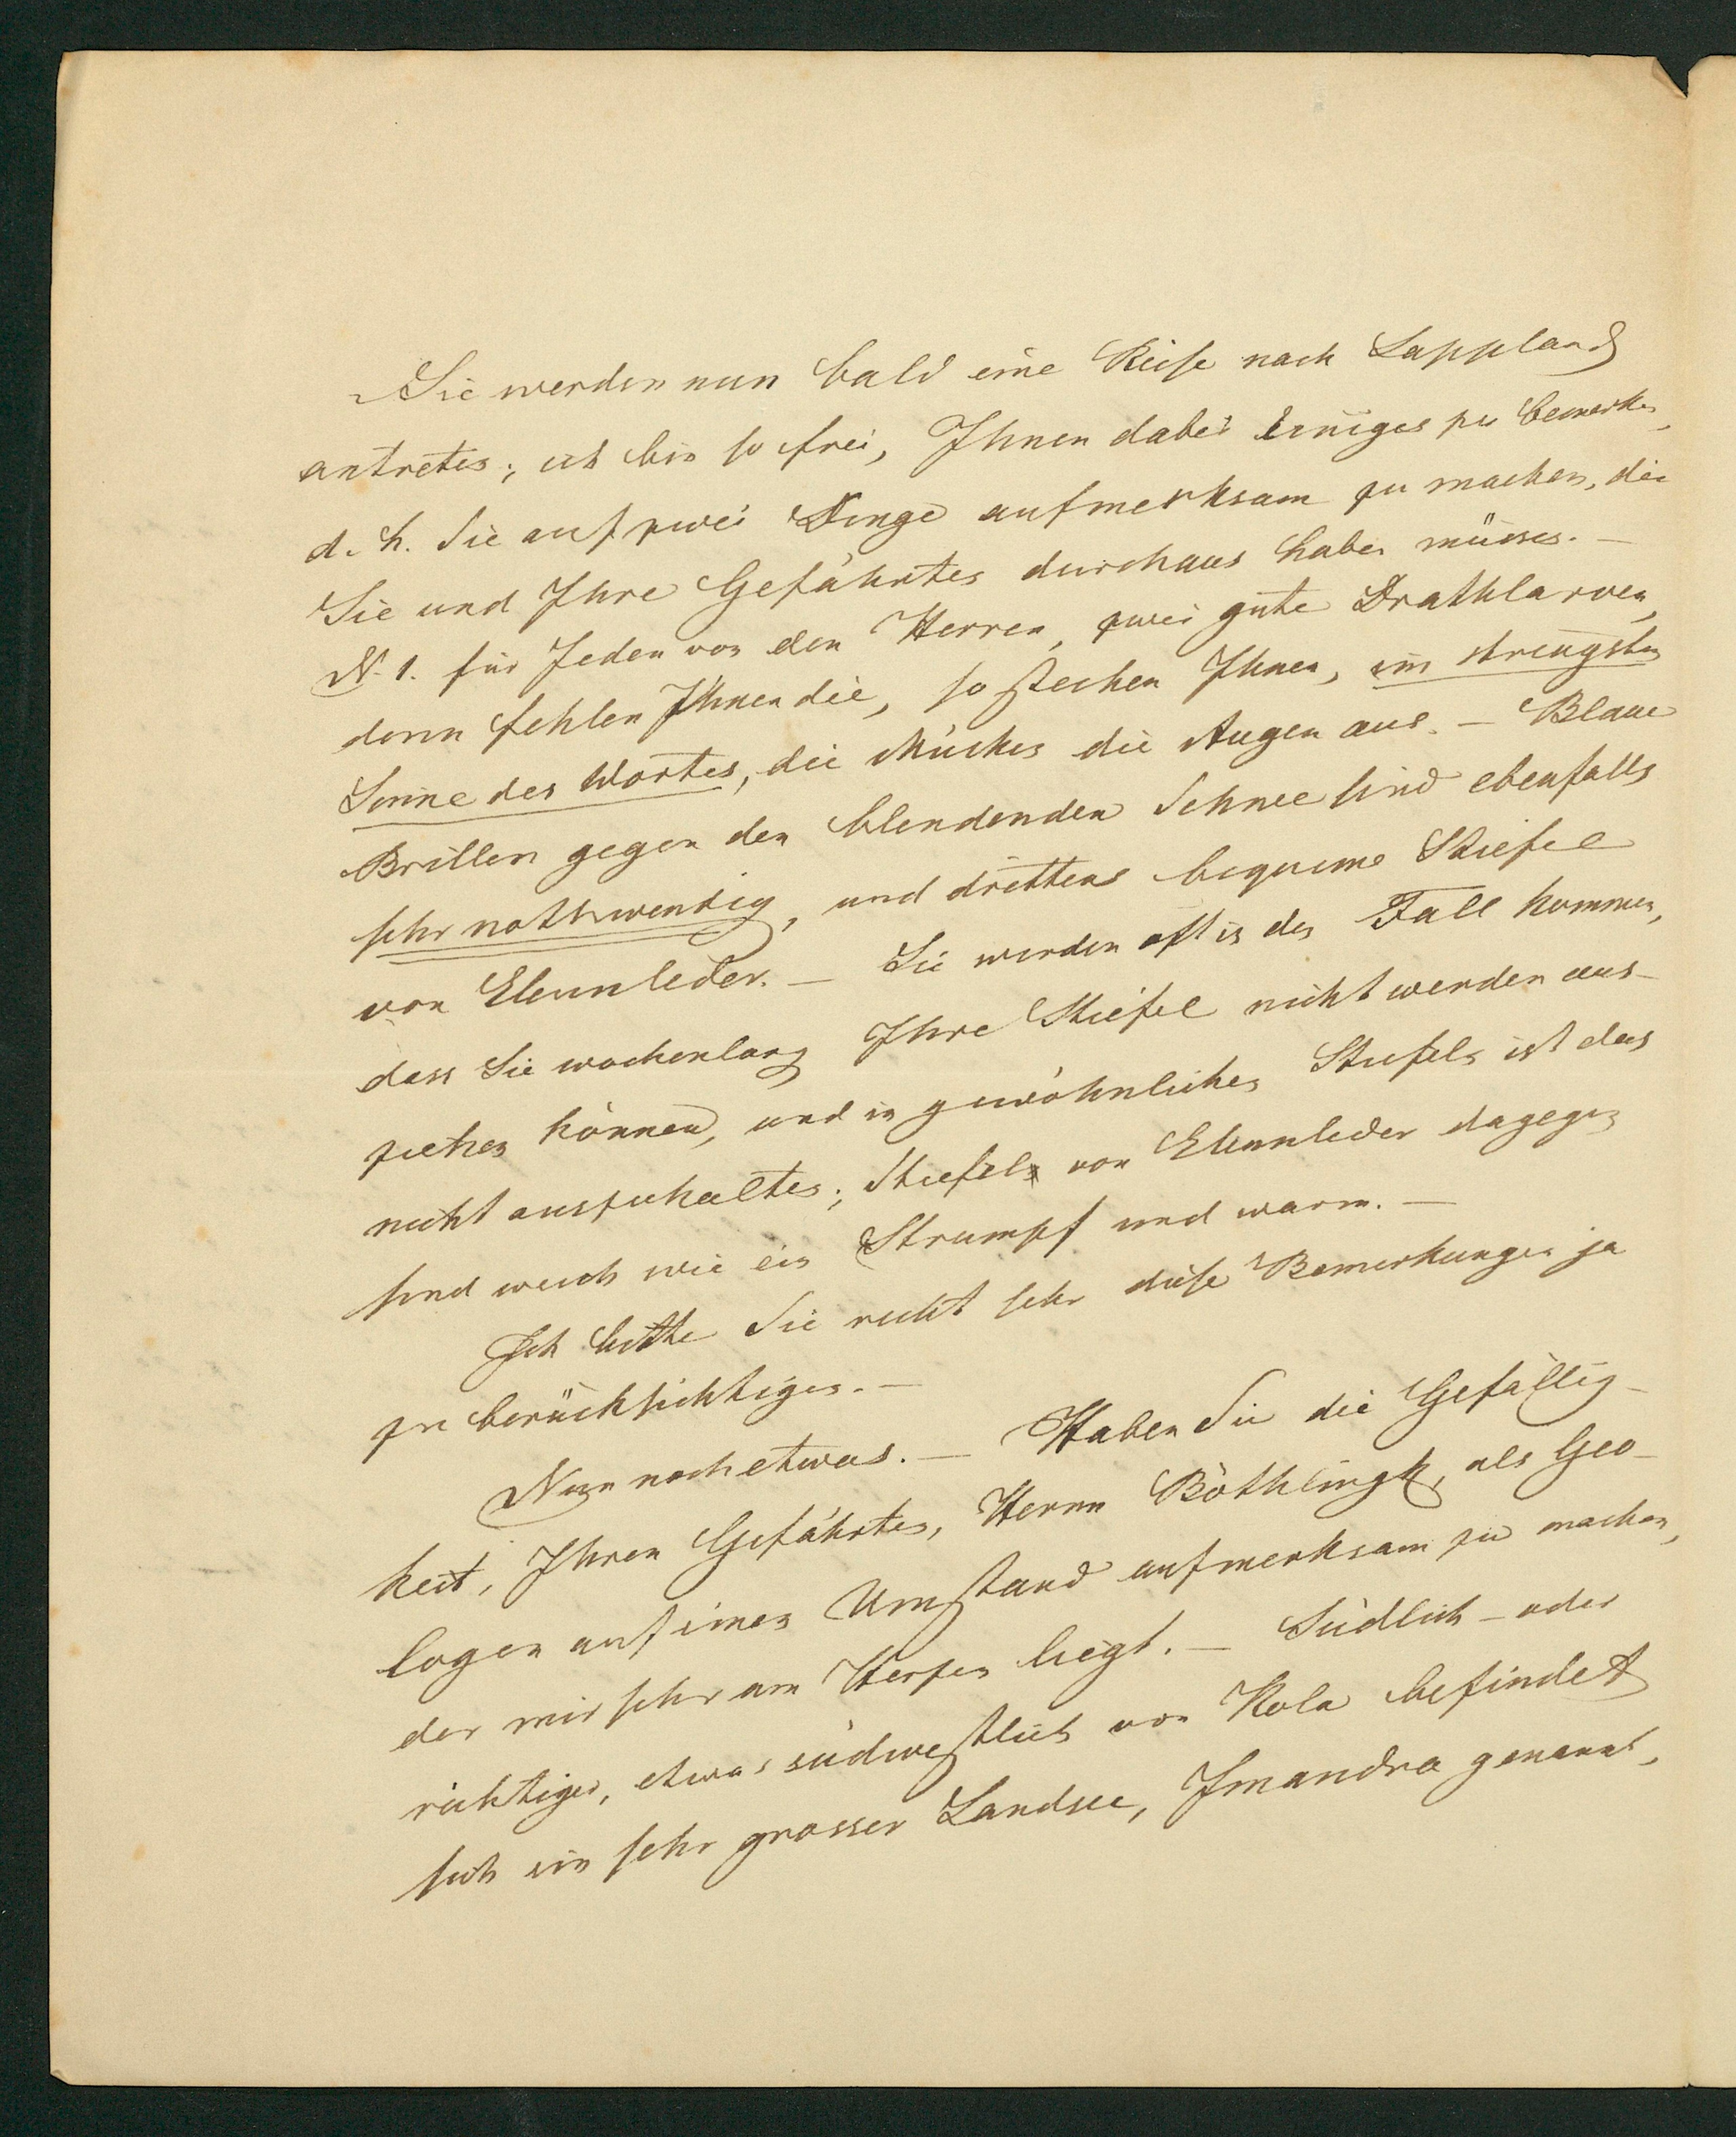 Sie werden nun bald eine Reise nach Lappland
antreten; ich bin so frei, Ihnen dabei Einiges zu bemerken,
d. h. Sie auf zwei Dinge aufmerksam zu machen, die
Sie und Ihre Gefährten durchaus haben müssen. —
N. 1. für Jeden von den Herren, zwei gute Drathlarven,
denn fehlen Ihnen die, so stechen Ihnen, im strengsten
Sinne des Wortes, die Mücken die Augen aus. — Blaue
Brillen gegen den blendenden Schnee sind ebenfalls
sehr nothwendig, und drittens bequeme Stiefel
von Elennleder. — Sie werden oft in den Fall kommen,
dass Sie wochenlang Ihre Stiefel nicht werden aus-
ziehen können, und in gewöhnlichen Stiefeln ist das
nicht auszuhalten; Stiefel von Elennleder dagegen
sind weich wie ein Strumpf und warm. —
Ich bitte Sie recht sehr diese Bemerkungen ja
zu berücksichtigen. —
Nun noch etwas. — Haben Sie die Gefällig-
keit, Ihren Gefährten, Herrn Böthlingk, als Geo-
logen auf einen Umstand aufmerksam zu machen,
der mir sehr am Herzen liegt. — Südlich – oder
richtiger, etwas südwestlich von Kola befindet
sich ein sehr grosser Landsee, Imandra genannt,